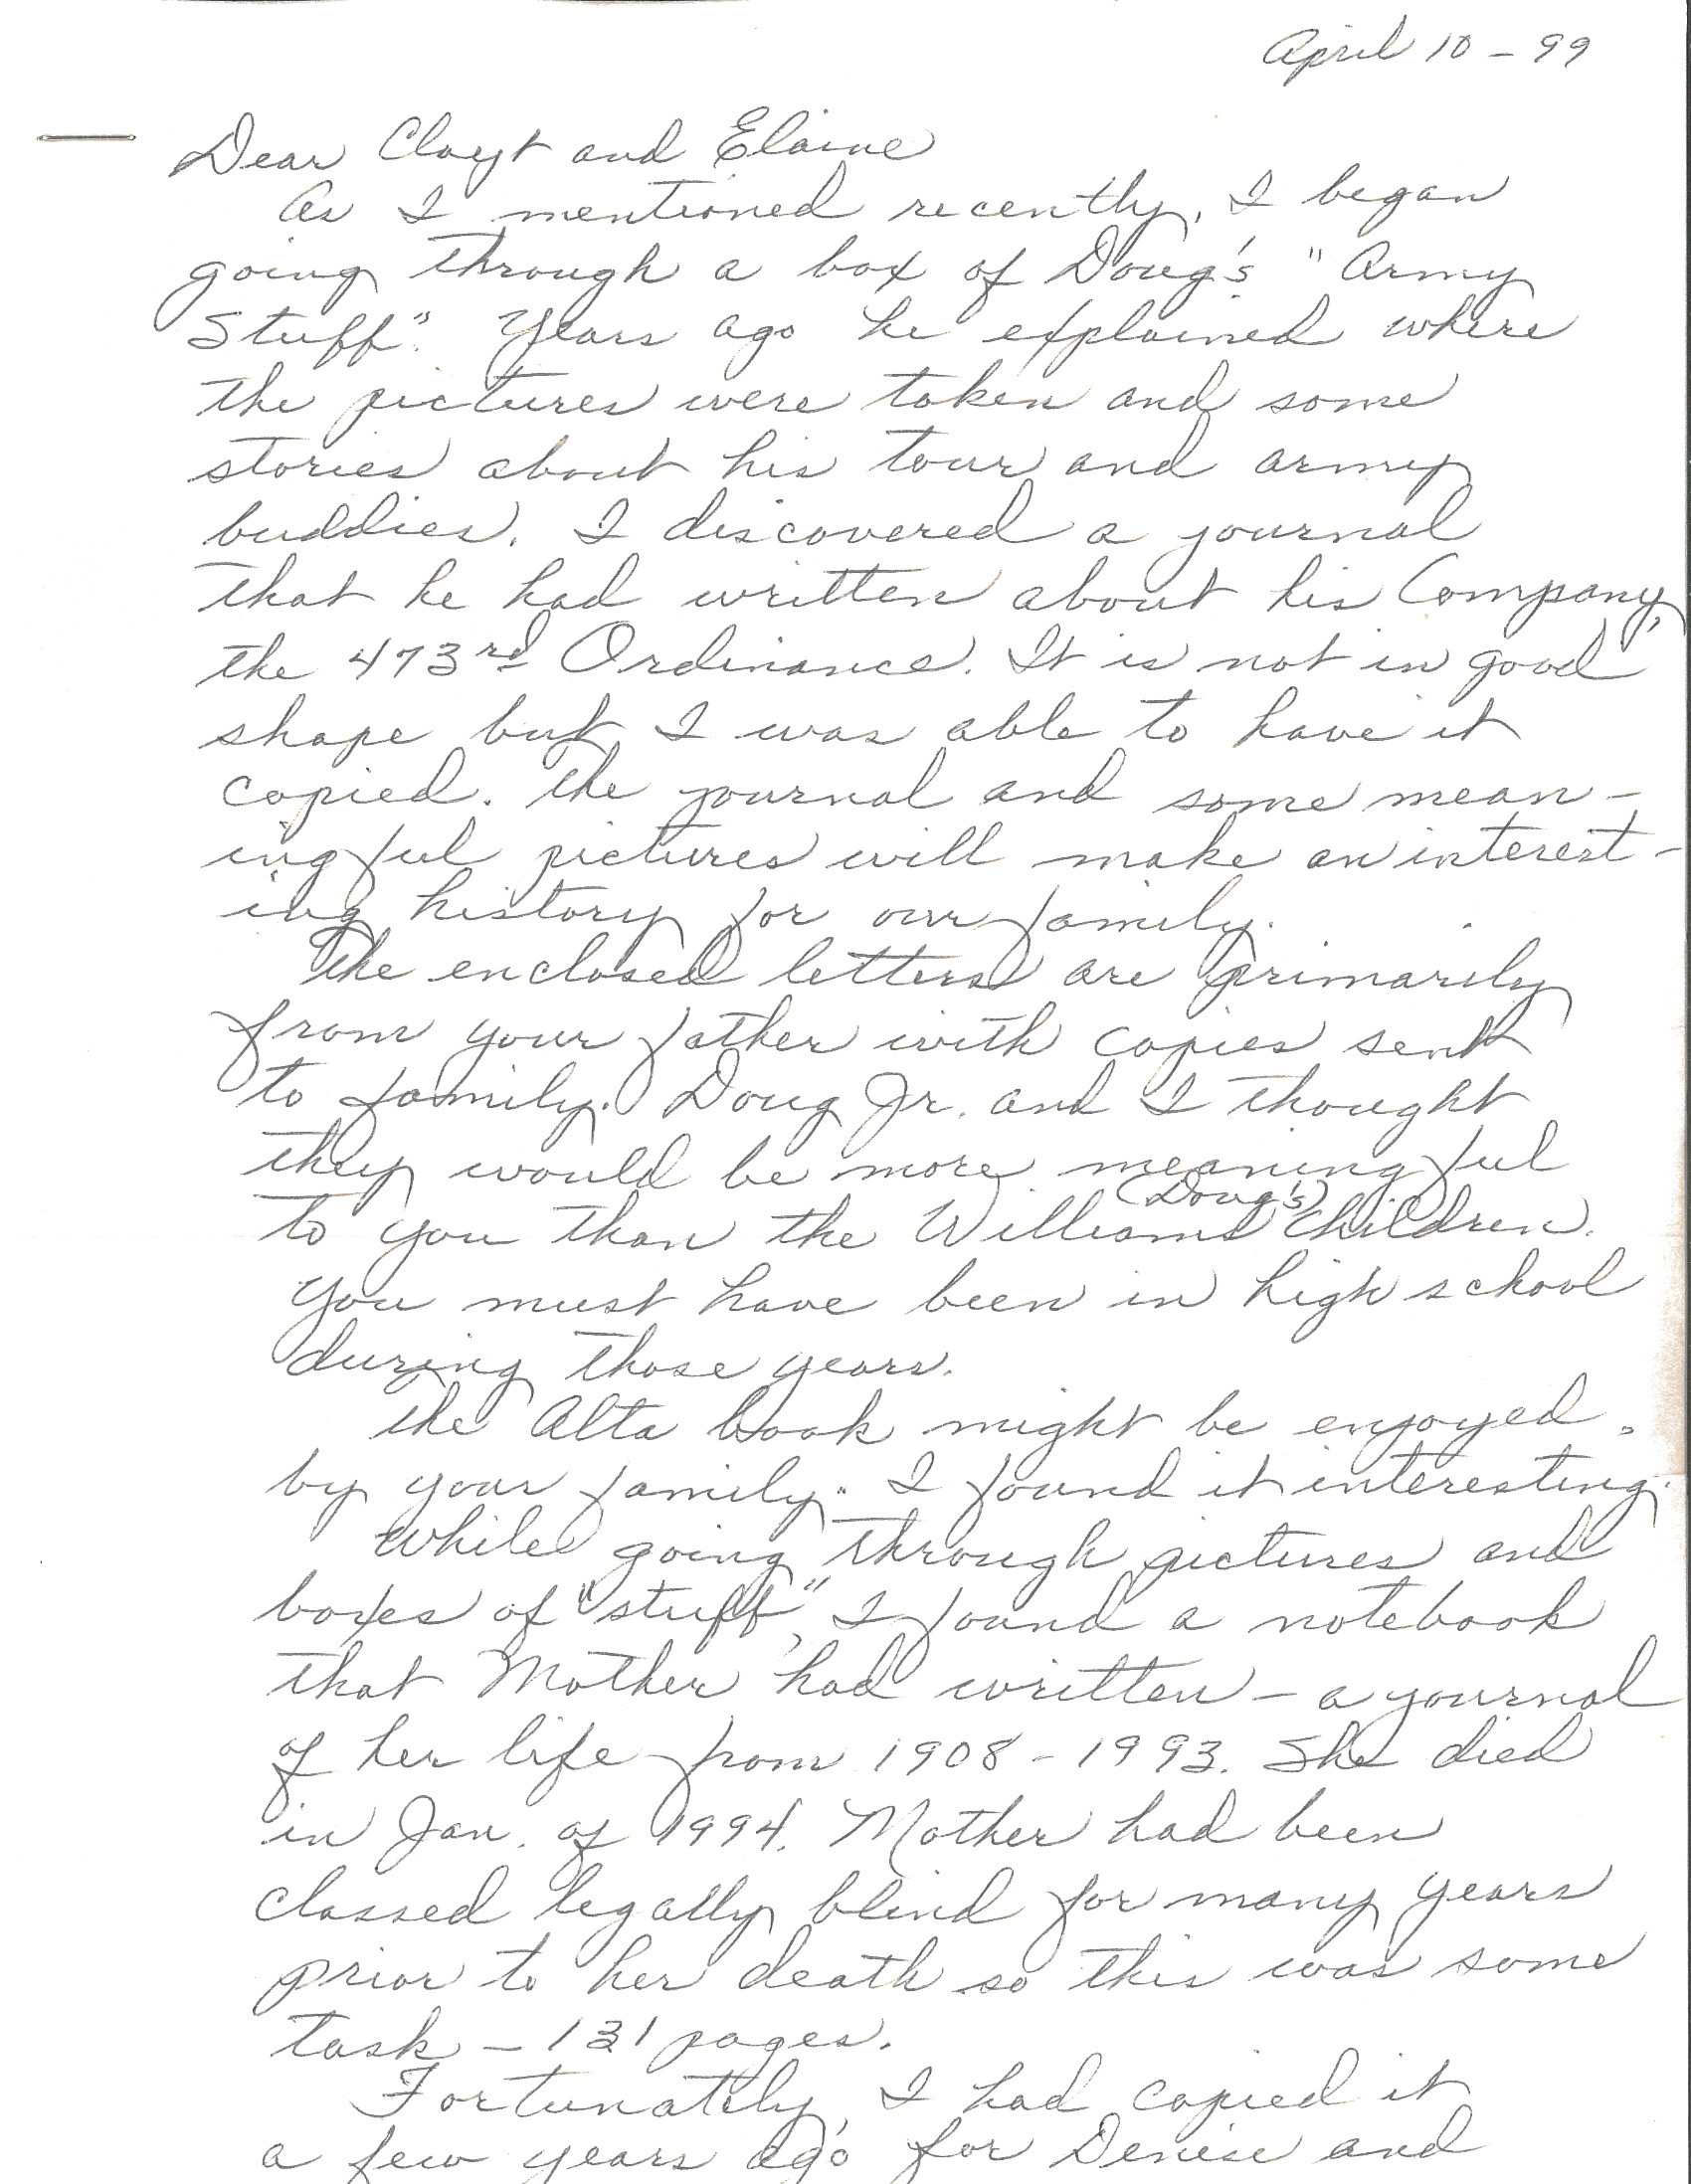 April 10 - 99
Dear Clayt and Elaine
As I mentioned recently, I began
going through a box of Doug's "Army
Stuff". Years ago he explained where
the pictures were taken and some
stories about his tour and army
buddies. I discovered a journal
that he had written about his Company,
the 473rd Ordinance. It is not in good
shape but I was able to have it
copied. The journal and some mean-
ingful pictures will make an interest-
ing history for our family.
The enclosed letters are primarily
from your father with copies sent
to family. Doug Jr. and I thought
they would be more meaningful
to you than the Williams (Doug's) Children.
You must have been in high school
during those years.
The Alta book might be enjoyed
by your family. I found it interesting.
While going through pictures and
boxes of "stuff", I found a notebook
that Mother had written - a journal
of her life from 1908 - 1993. She died
in Jan. of 1994. Mother had been
classed legally blind for many years
prior to her death so this was some
task - 131 pages.
Fortunately, I had copied it
a few years ago for Denise and